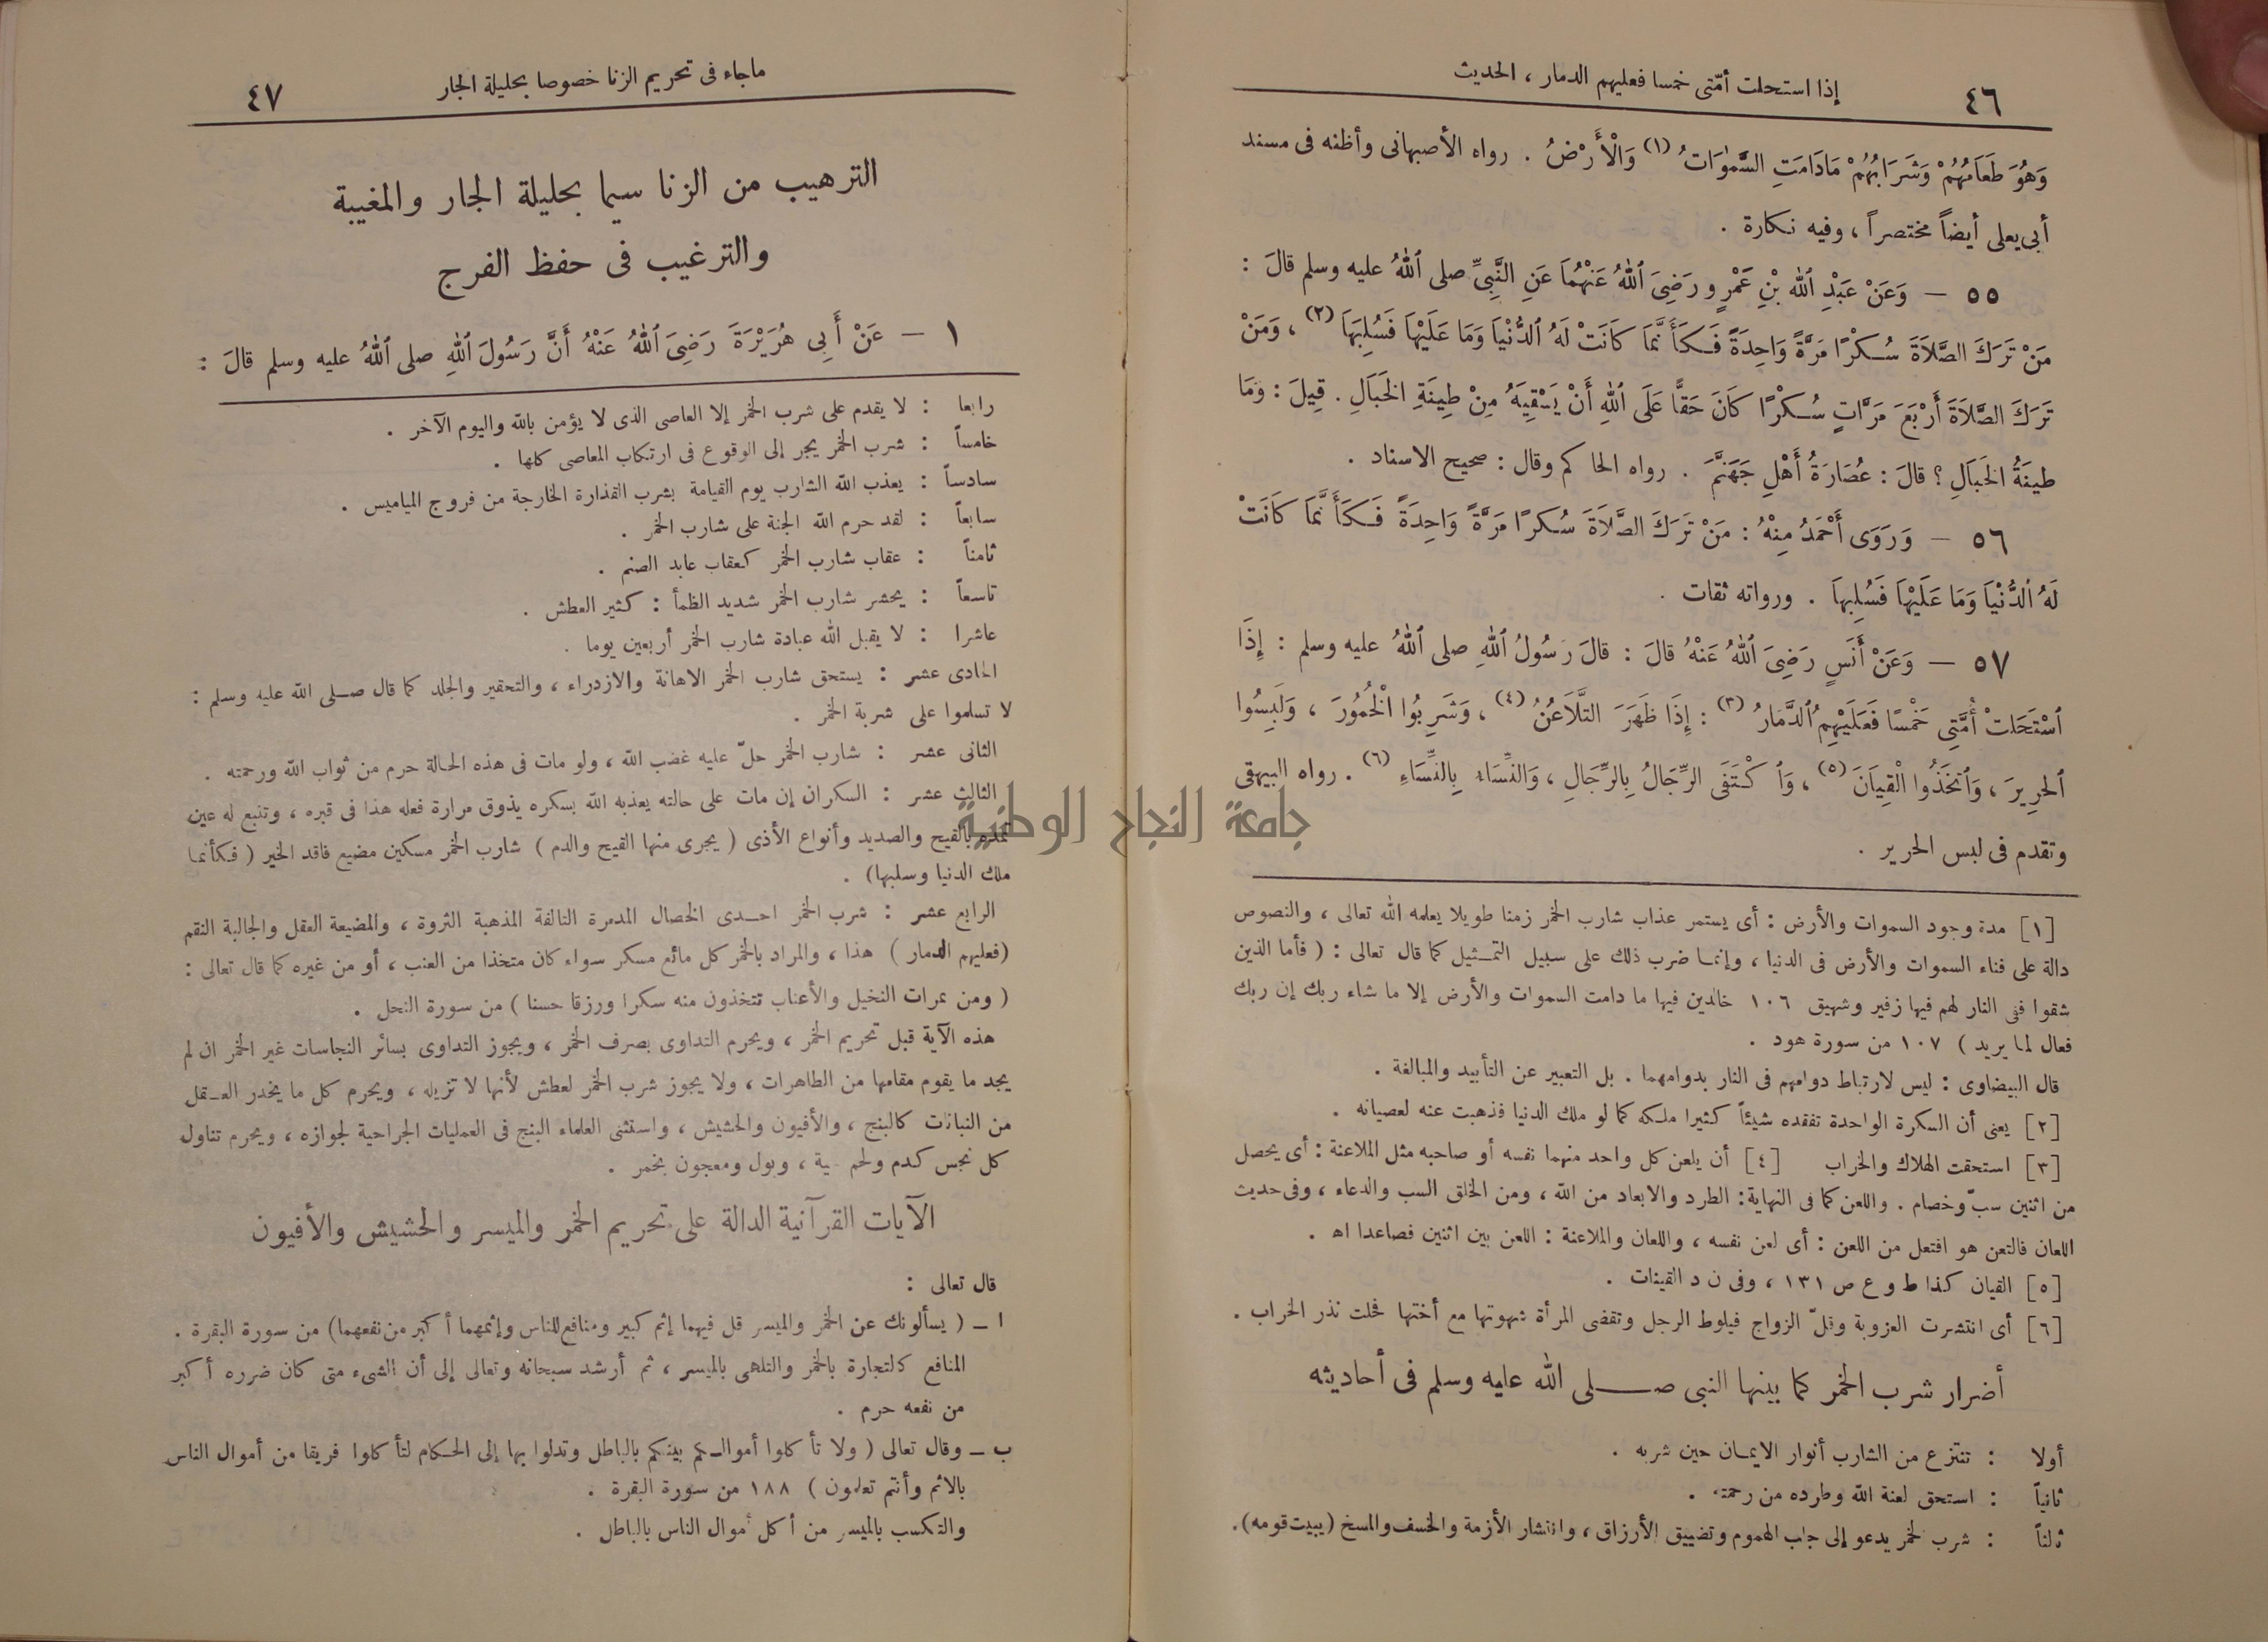 ٤٦
إذا استحلت أمّتى خمسا فعليهم الدمار ، الحديث
وَهُوَ طَعَامُهُمْ وَشَرَابُهُمْ مَادَامَتِ السَّمٰوَاتُ (١) وَالْأَرْضُ . رواه الأصبهانى وأظنه فى مسند
أبى يعلى أيضاً مختصراً ، وفيه نكارة .
٥٥ — وَعَنْ عَبْدِ ٱللهِ بْنِ عَمْرٍو رَضِىَ ٱللهُ عَنْهُمَا عَنِ النَّبِىِّ صلى ٱللهُ عليه وسلم قالَ :
مَنْ تَرَكَ الصَّلَاةَ سُكْرًا مَرَّةً وَاحِدَةً فَكَأَنَّمَا كَانَتْ لَهُ ٱلدُّنْيَا وَمَا عَلَيْهَا فَسُلِبَهَا (٢) ، وَمَنْ
تَرَكَ الصَّلَاةَ أَرْبَعَ مَرَّاتٍ سُكْرًا كَانَ حَقًّا عَلَى ٱللهِ أَنْ يَسْقِيَهُ مِنْ طِينَةِ الخَبَالِ . قِيلَ : وَمَا
طِينَةُ الخَبَالِ ؟ قالَ : عُصَارَةُ أَهْلِ جَهَنَّمَ . رواه الحاكم وقال : صحيح الاسناد .
٥٦ — وَرَوَى أَحْمَدُ مِنْهُ : مَنْ تَرَكَ الصَّلَاةَ سُكرًا مَرَّةً وَاحِدَةً فَكَأَنَّمَا كَانَتْ
لَهُ الدُّنْيَا وَمَا عَلَيْهَا فَسُلِبَهَا . ورواته ثقات .
٥٧ — وَعَنْ أَنَسٍ رَضِىَ ٱللهُ عَنْهُ قالَ : قالَ رَسُولُ ٱللهِ صلى ٱللهُ عليه وسلم : إِذَا
ٱسْتَحَلتْ أُمَّتِى خَمْسًا فَعَلَيْهِمُ ٱلدَّمَارُ (٣) : إِذَا ظَهَرَ التَّلَاعُنُ (٤) ، وَشَرِبُوا الْخُمُورَ ، وَلَبِسُوا
ٱلحرِيرَ ، وَٱتخَذُوا الْقِيَانَ (٥) ، وَٱكْتَفَى الرِّجَالُ بِالرِّجَالِ ، وَالنِّسَاءُ بِالنِّسَاءِ (٦) . رواه البيهقى
وتقدم فى لبس الحرير .
[١] مدة وجود السموات والأرض : أى يستمر عذاب شارب الخمر زمنا طويلا يعلمه الله تعالى ، والنصوص
دالة على فناء السموات والأرض فى الدنيا ، وإنما ضرب ذلك على سبيل التمثيل كما قال تعالى : ( فأما الذين
شقوا ففى النار لهم فيها زفير وشهيق ١٠٦ خالدين فيها ما دامت السموات والأرض إلا ما شاء ربك إن ربك
فعال لما يريد ) ١٠٧ من سورة هود .
قال البيضاوى : ليس لارتباط دوامهم فى النار بدوامهما . بل التعبير عن التأبيد والمبالغة .
[٢] يعنى أن السكرة الواحدة تفقده شيئاً كثيرا ملكه كما لو ملك الدنيا فذهبت عنه لعصيانه .
[٣] استحقت الهلاك والخراب [٤] أن يلعن كل واحد منهما نفسه أو صاحبه مثل الملاعنة : أى يحصل
من اثنين سبّ وخصام . واللعن كما فى النهاية : الطرد والابعاد من الله ، ومن الخلق السب والدعاء ، وفى حديث
اللعان فالتعن هو افتعل من اللعن : أى لعن نفسه ، واللعان والملاعنة : اللعن بين اثنين فصاعدا اهـ .
[٥] القيان كذا ط و ع ص ١٣١ ، وفى ن د القينات .
[٦] أى انتشرت العزوبة وقلّ الزواج فيلوط الرجل وتقضى المرأة شهوتها مع أختها فحلت نذر الخراب .
أضرار شرب الخمر كما بينها النبى صلى الله عليه وسلم فى أحاديثه
أولا : تنتزع من الشارب أنوار الايمان حين شربه .
ثانياً : استحق لعنة الله وطرده من رحمته .
ثالثاً : شرب الخمر يدعو إلى جلب الهموم وتضييق الأرزاق ، وانتشار الأزمة والخسف والمسخ (يبيت قومه) .
ماجاء فى تحريم الزنا خصوصا بحليلة الجار
٤٧
الترهيب من الزنا سيما بحليلة الجار والمغيبة
والترغيب فى حفظ الفرج
١ — عَنْ أَبِى هُرَيْرَةَ رَضِىَ ٱللهُ عَنْهُ أَنَّ رَسُولَ ٱللهِ صلى ٱللهُ عليه وسلم قالَ :
رابعا : لا يقدم على شرب الخمر إلا العاصى الذى لا يؤمن بالله واليوم الآخر .
خامساً : شرب الخمر يجر إلى الوقوع فى ارتكاب المعاصى كلها .
سادساً : يعذب الله الشارب يوم القيامة بشرب القذارة الخارجة من فروج المياميس .
سابعاً : لقد حرم الله الجنة على شارب الخمر .
ثامناً : عقاب شارب الخمر كعقاب عابد الصنم .
تاسعاً : يحشر شارب الخمر شديد الظمأ : كثير العطش .
عاشرا : لا يقبل الله عبادة شارب الخمر أربعين يوما .
الحادى عشر : يستحق شارب الخمر الاهانة والازدراء ، والتحقير والجلد كما قال صلى الله عليه وسلم :
لا تسلموا على شربة الخمر .
الثانى عشر : شارب الخمر حلّ عليه غضب الله ، ولو مات فى هذه الحالة حرم من ثواب الله ورحمته .
الثالث عشر : السكران إن مات على حالته يعذبه الله بسكره يذوق مرارة فعله هذا فى قبره ، وتنبع له عين
تمده بالقيح والصديد وأنواع الأذى ( يجرى منها القيح والدم ) شارب الخمر مسكين مضيع فاقد الخير ( فكأنما
ملك الدنيا وسلبها) .
الرابع عشر : شرب الخمر احدى الخصال المدمرة التالفة المذهبة الثروة ، والمضيعة العقل والجالبة النقم
(فعليهم الدمار ) هذا ، والمراد بالخمر كل مائع مسكر سواء كان متخذا من العنب ، أو من غيره كما قال تعالى :
( ومن ثمرات النخيل والأعناب تتخذون منه سكرا ورزقا حسنا ) من سورة النحل .
هذه الآية قبل تحريم الخمر ، ويحرم التداوى بصرف الخمر ، ويجوز التداوى بسائر النجاسات غير الخمر ان لم
يجد ما يقوم مقامها من الطاهرات ، ولا يجوز شرب الخمر لعطش لأنها لا تزيله ، ويحرم كل ما يخدر العقل
من النباتات كالبنج ، والأفيون والحشيش ، واستثنى العلماء البنج فى العمليات الجراحية لجوازه ، ويحرم تناول
كل نجس كدم ولحم ، وبول ومعجون بخمر .
الآيات القرآنية الدالة على تحريم الخمر والميسر والحشيش والأفيون
قال تعالى :
ا — ( يسألونك عن الخمر والميسر قل فيهما إثم كبير ومنافع للناس وإثمهما أكبر من نفعهما) من سورة البقرة .
المنافع كالتجارة بالخمر والتلهى بالميسر ، ثم أرشد سبحانه وتعالى إلى أن الشىء متى كان ضرره أكبر
من نفعه حرم .
ب — وقال تعالى ( ولا تأكلوا أموالكم بينكم بالباطل وتدلوا بها إلى الحكام لتأكلوا فريقا من أموال الناس
بالاثم وأنتم تعلمون ) ١٨٨ من سورة البقرة .
والتكسب بالميسر من أكل أموال الناس بالباطل .
جامعة النجاح الوطنية